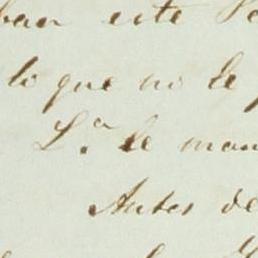 ban este Pe
lo que no le p
L.ª le man
Antes de